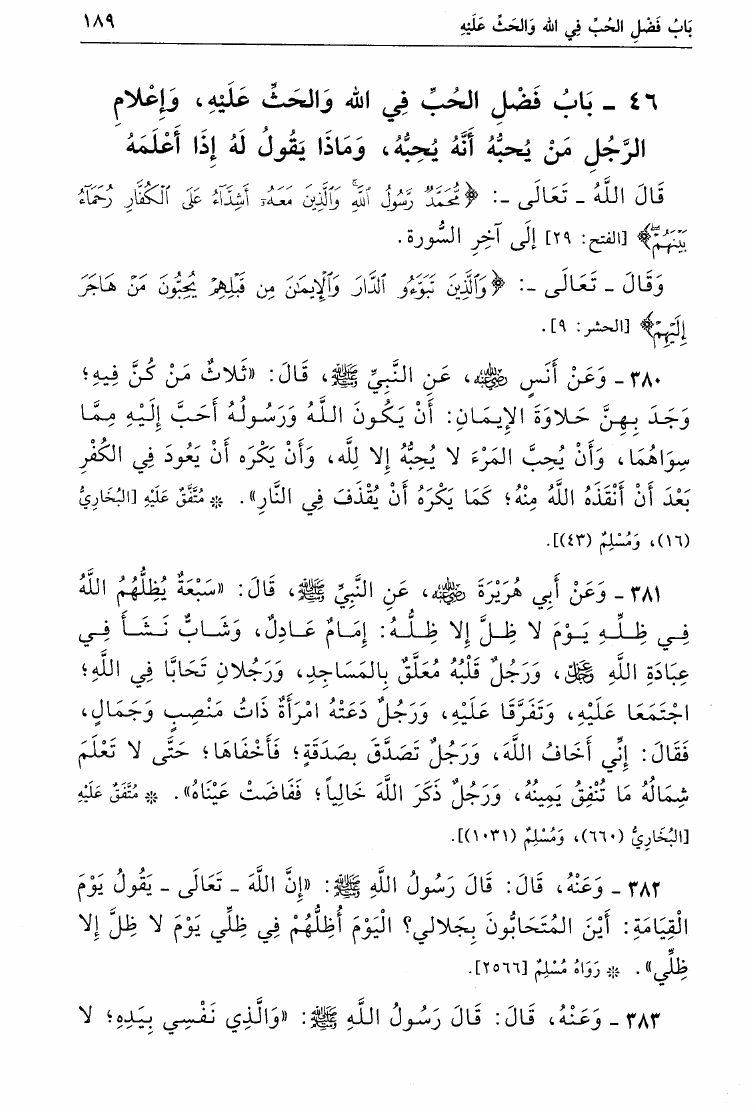 بَابُ فَضْلِ الحُبِّ فِي اللهِ وَالحَثِّ عَلَيْهِ ١٨٩
٤٦ ـ بَابُ فَضْلِ الحُبِّ فِي اللهِ وَالحَثِّ عَلَيْهِ، وَإِعْلامِ
الرَّجُلِ مَنْ يُحِبُّهُ أَنَّهُ يُحِبُّهُ، وَمَاذَا يَقُولُ لَهُ إِذَا أَعْلَمَهُ
قَالَ اللَّهُ ـ تَعَالَى ـ: ﴿مُّحَمَّدٌ رَّسُولُ ٱللَّهِۚ وَٱلَّذِينَ مَعَهُۥٓ أَشِدَّآءُ عَلَى ٱلْكُفَّارِ رُحَمَآءُ
بَيْنَهُمْۖ﴾ [الفتح: ٢٩] إِلَى آخِرِ السُّورة.
وَقَالَ ـ تَعَالَى ـ: ﴿وَٱلَّذِينَ تَبَوَّءُو ٱلدَّارَ وَٱلْإِيمَٰنَ مِن قَبْلِهِمْ يُحِبُّونَ مَنْ هَاجَرَ
إِلَيْهِمْ﴾ [الحشر: ٩].
٣٨٠ ـ وَعَنْ أَنَسٍ رضي الله عنه، عَنِ النَّبِيِّ ﷺ، قَالَ: «ثَلاثٌ مَنْ كُنَّ فِيهِ؛
وَجَدَ بِهِنَّ حَلاوَةَ الإِيمَانِ: أَنْ يَكُونَ اللَّهُ وَرَسُولُهُ أَحَبَّ إِلَيْهِ مِمَّا
سِوَاهُمَا، وَأَنْ يُحِبَّ المَرْءَ لا يُحِبُّهُ إِلا لِلَّه، وَأَنْ يَكْرَه أَنْ يَعُودَ فِي الكُفْرِ
بَعْدَ أَنْ أَنْقَذَهُ اللَّهُ مِنْهُ؛ كَمَا يَكْرَهُ أَنْ يُقْذَفَ فِي النَّارِ». * مُتَّفَقٌ عَلَيْهِ [البُخَارِيُّ
(١٦)، وَمُسْلِمٌ (٤٣)].
٣٨١ ـ وَعَنْ أَبِي هُرَيْرَةَ رضي الله عنه، عَنِ النَّبِيِّ ﷺ، قَالَ: «سَبْعَةٌ يُظِلُّهُمُ اللَّهُ
فِي ظِلِّهِ يَوْمَ لا ظِلَّ إِلا ظِلُّهُ: إِمَامٌ عَادِلٌ، وَشَابٌّ نَشَأَ فِي
عِبَادَةِ اللَّهِ عز وجل، وَرَجُلٌ قَلْبُهُ مُعَلَّقٌ بِالمَسَاجِدِ، وَرَجُلانِ تَحَابَّا فِي اللَّهِ؛
اجْتَمَعَا عَلَيْهِ، وَتَفَرَّقَا عَلَيْهِ، وَرَجُلٌ دَعَتْهُ امْرَأَةٌ ذَاتُ مَنْصِبٍ وَجَمَالٍ،
فَقَالَ: إِنِّي أَخَافُ اللَّهَ، وَرَجُلٌ تَصَدَّقَ بِصَدَقَةٍ؛ فَأَخْفَاهَا؛ حَتَّى لا تَعْلَمَ
شِمَالُهُ مَا تُنْفِقُ يَمِينُهُ، وَرَجُلٌ ذَكَرَ اللَّهَ خَالِياً؛ فَفَاضَتْ عَيْنَاهُ». * مُتَّفَقٌ عَلَيْهِ
[البُخَارِيُّ (٦٦٠)، وَمُسْلِمٌ (١٠٣١)].
٣٨٢ ـ وَعَنْهُ، قَالَ: قَالَ رَسُولُ اللَّهِ ﷺ: «إِنَّ اللَّهَ ـ تَعَالَى ـ يَقُولُ يَوْمَ
الْقِيَامَةِ: أَيْنَ المُتَحَابُّونَ بِجَلالِي؟ الْيَوْمَ أُظِلُّهُمْ فِي ظِلِّي يَوْمَ لا ظِلَّ إِلا
ظِلِّي». * رَوَاهُ مُسْلِمٌ [٢٥٦٦].
٣٨٣ ـ وَعَنْهُ، قَالَ: قَالَ رَسُولُ اللَّهِ ﷺ: «وَالَّذِي نَفْسِي بِيَدِهِ؛ لا